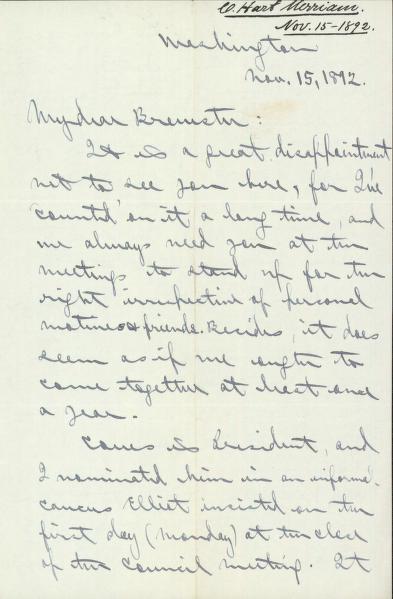 C. Hart Merriam.
Nov. 15-1892.
Washington
Nov. 15, 1892.
My dear Brewster:
It is a great disappointment
not to see you here, for I've
count'd on it a long time, and
we always need you at the
meetings to stand up for the
right irrespective of personal
motives & friends. Besides, it does
seem as if we ought to
come together at least once
a year.
Coues is President, and
I nominated him in an informal
caucus Elliot insisted on the
first day (Monday) at the close
of the council meeting. It